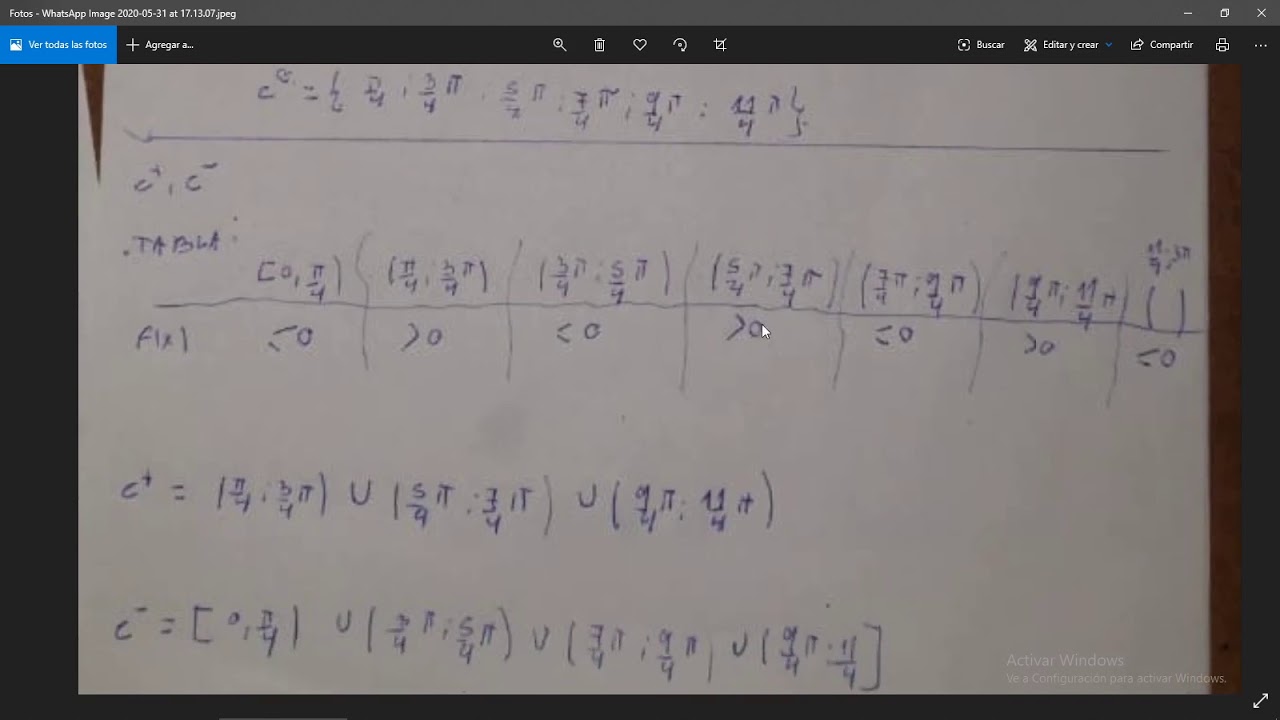 Fotos - WhatsApp Image 2020-05-31 at 17.13.07.jpeg
Ver todas las fotos Agregar a... Buscar Editar y crear Compartir
= { π/4 ; 3/4 π ; 5/4 π ; 7/4 π ; 9/4 π ; 11/4 π }
c⁺, c⁻
.TABLA:
[0, π/4) (π/4 ; 3/4 π) (3/4 π ; 5/4 π) (5/4 π ; 7/4 π) (7/4 π ; 9/4 π) (9/4 π ; 11/4 π) ( 11/4 ; 3π )
F(x) <0 >0 <0 >0 <0 >0 <0
c⁺ = (π/4 ; 3/4 π) ∪ (5/4 π ; 7/4 π) ∪ (9/4 π ; 11/4 π)
c⁻ = [0, π/4) ∪ (3/4 π ; 5/4 π) ∪ (7/4 π ; 9/4 π) ∪ (9/4 π ; 11/4]
Activar Windows
Ve a Configuración para activar Windows.